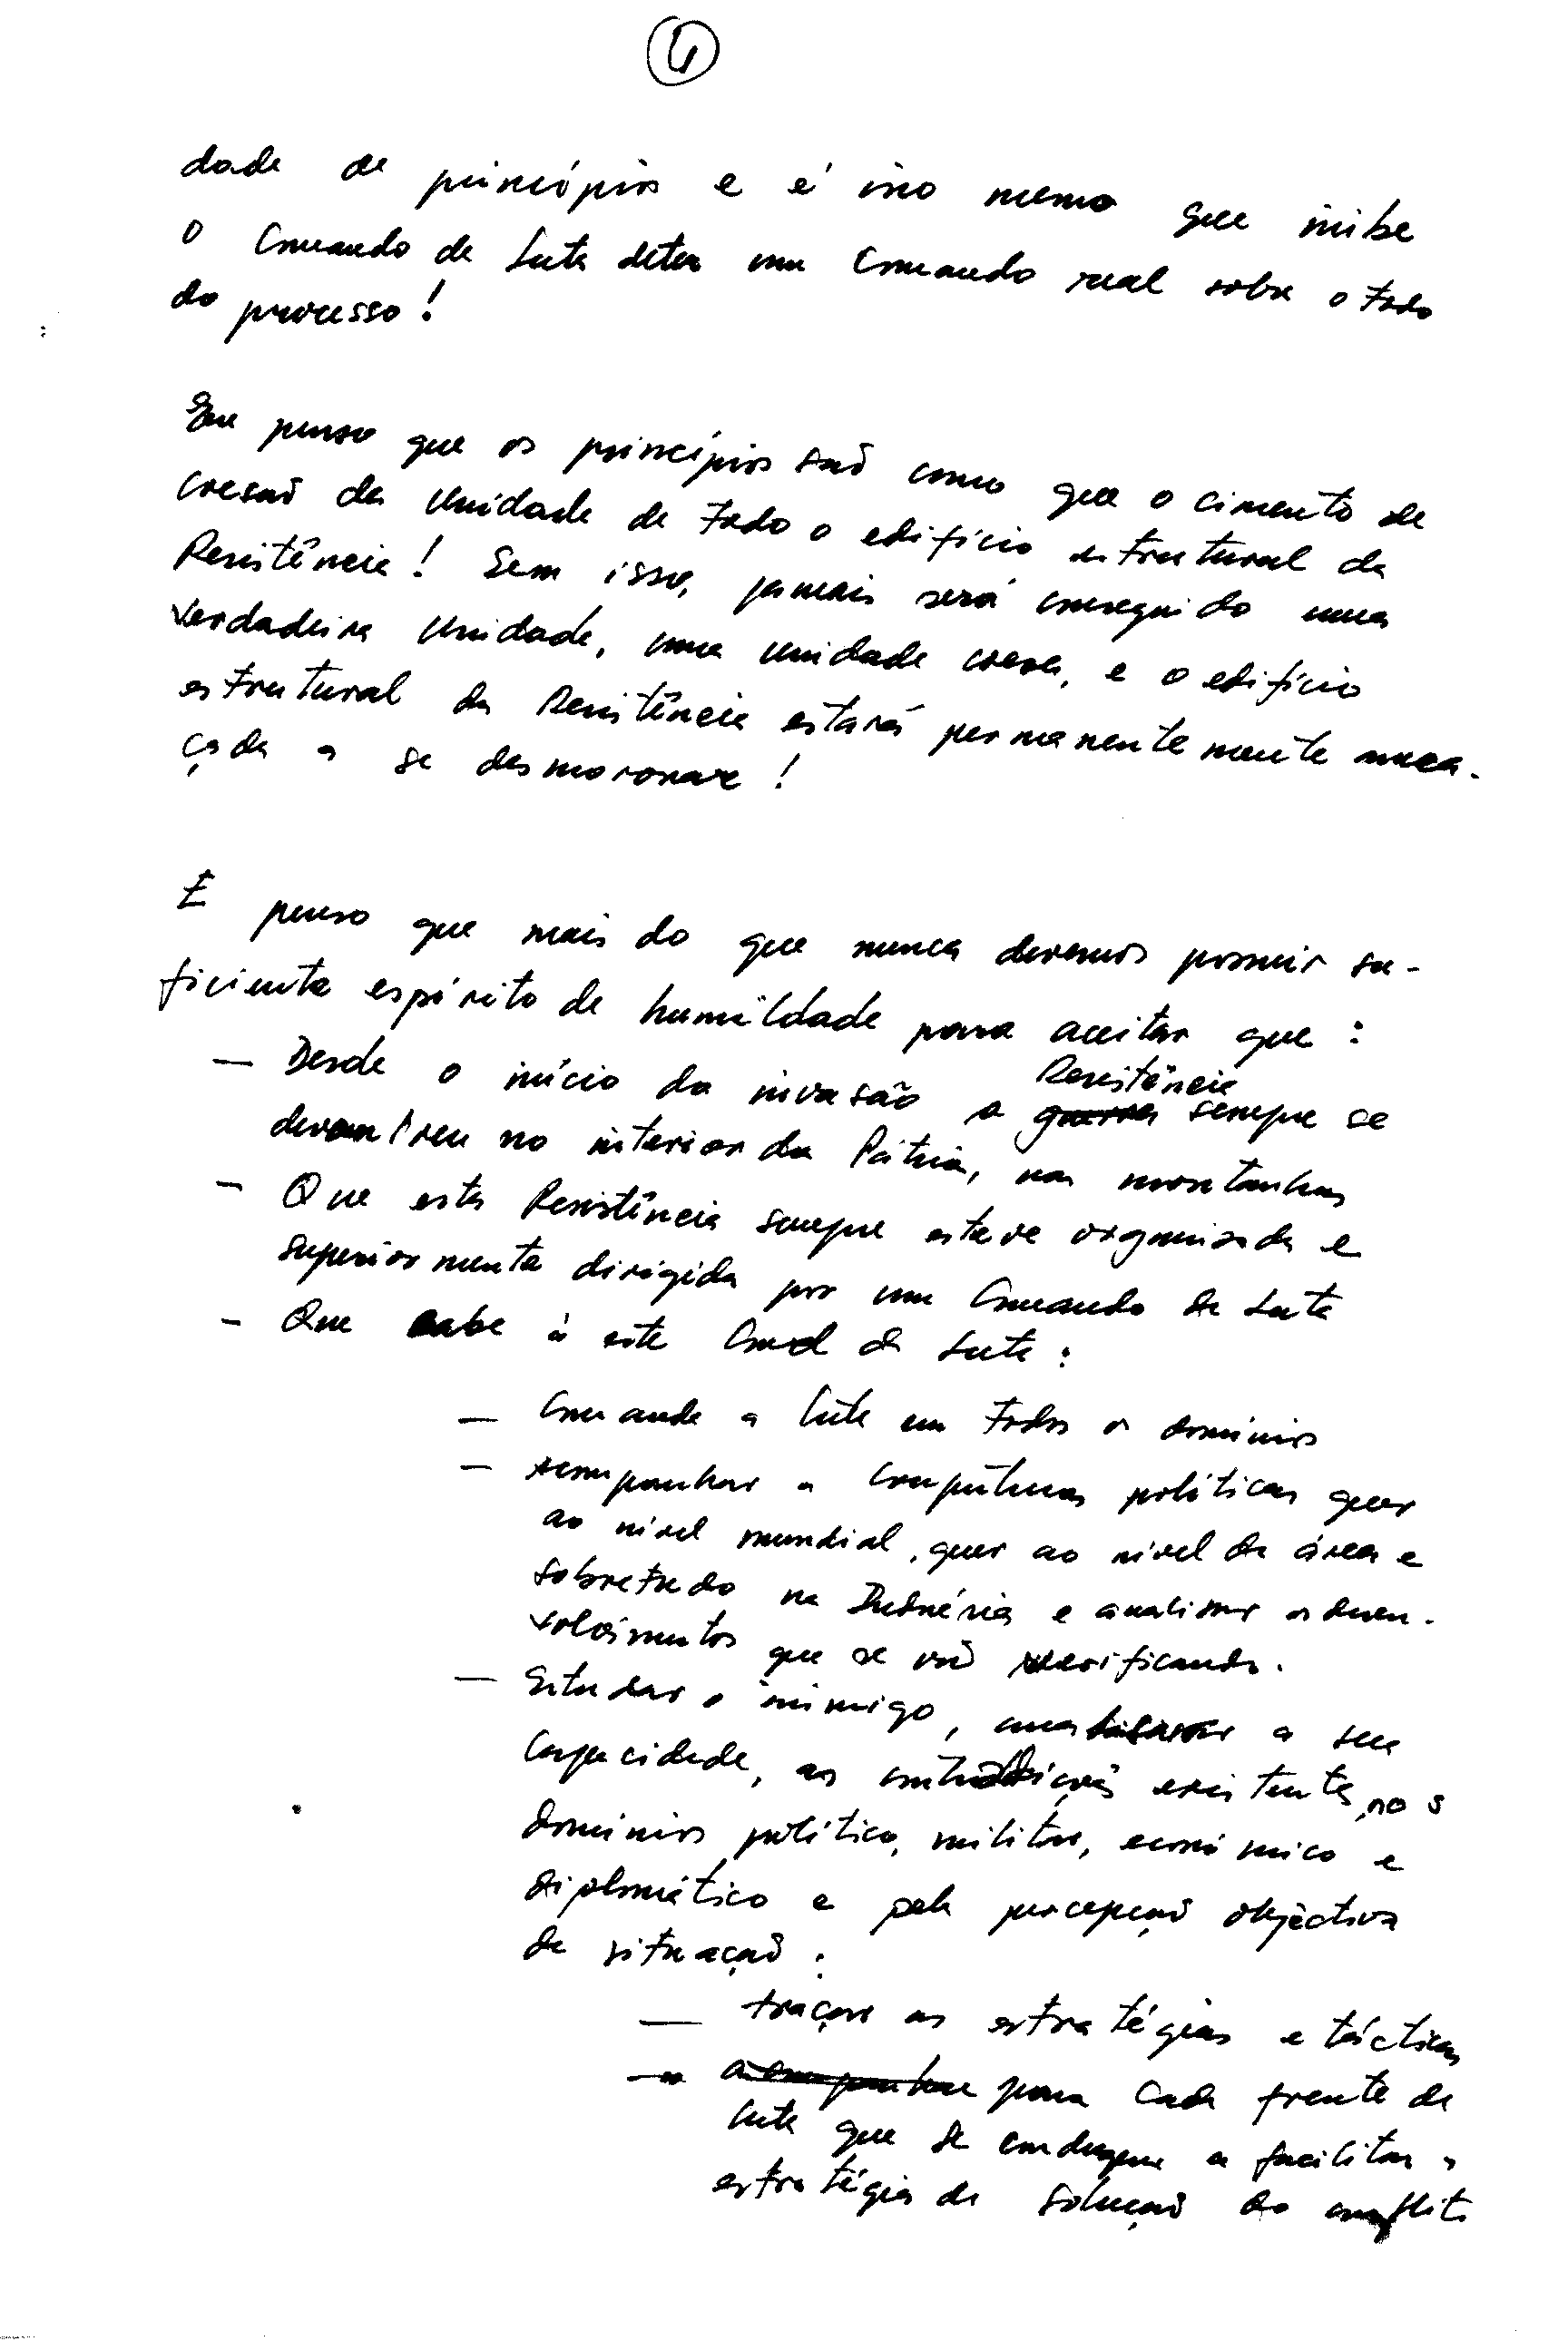 4
dade de princípios e é isso mesmo que inibe
o Comando da Luta deter um Comando real sobre o todo
do processo!
Eu penso que os princípios saõ como que o cimento de
coesaõ da unidade de todo o edifício estrutural da
Resistência! Sem isso, jamais será conseguido uma
verdadeira unidade, uma unidade coesa, e o edifício
estrutural da Resistência estará permanentemente amea-
çada a se desmoronar!
E penso que mais do que nunca devemos possuir su-
ficiente espírito de humildade para aceitar que:
Resistência
— Desde o início da invasão a guerra sempre se
desenvolveu no interior da Pátria, nas montanhas
- Que esta Resistência sempre esteve organizada e
superiormente dirigida por um Comando da Luta
- Que cabe à este Cmd da Luta:
— Comandar a luta em todos os domínios
— acompanhar as conjunturas políticas quer
ao nível mundial, quer ao nível da área e
sobretudo na Indonésia e analisar os desen-
volvimentos que se vaõ verificando.
— Estudar o inimigo, analisar a sua
capacidade, as contradições existentes nos
domínios político, militar, económico e
diplomático e pela percepçaõ objectiva
da situaçaõ:
— traçar as estratégias e tácticas
— acompanhar para cada frente da
luta que se conduzam a facilitar a
estratégia da soluçaõ do conflito